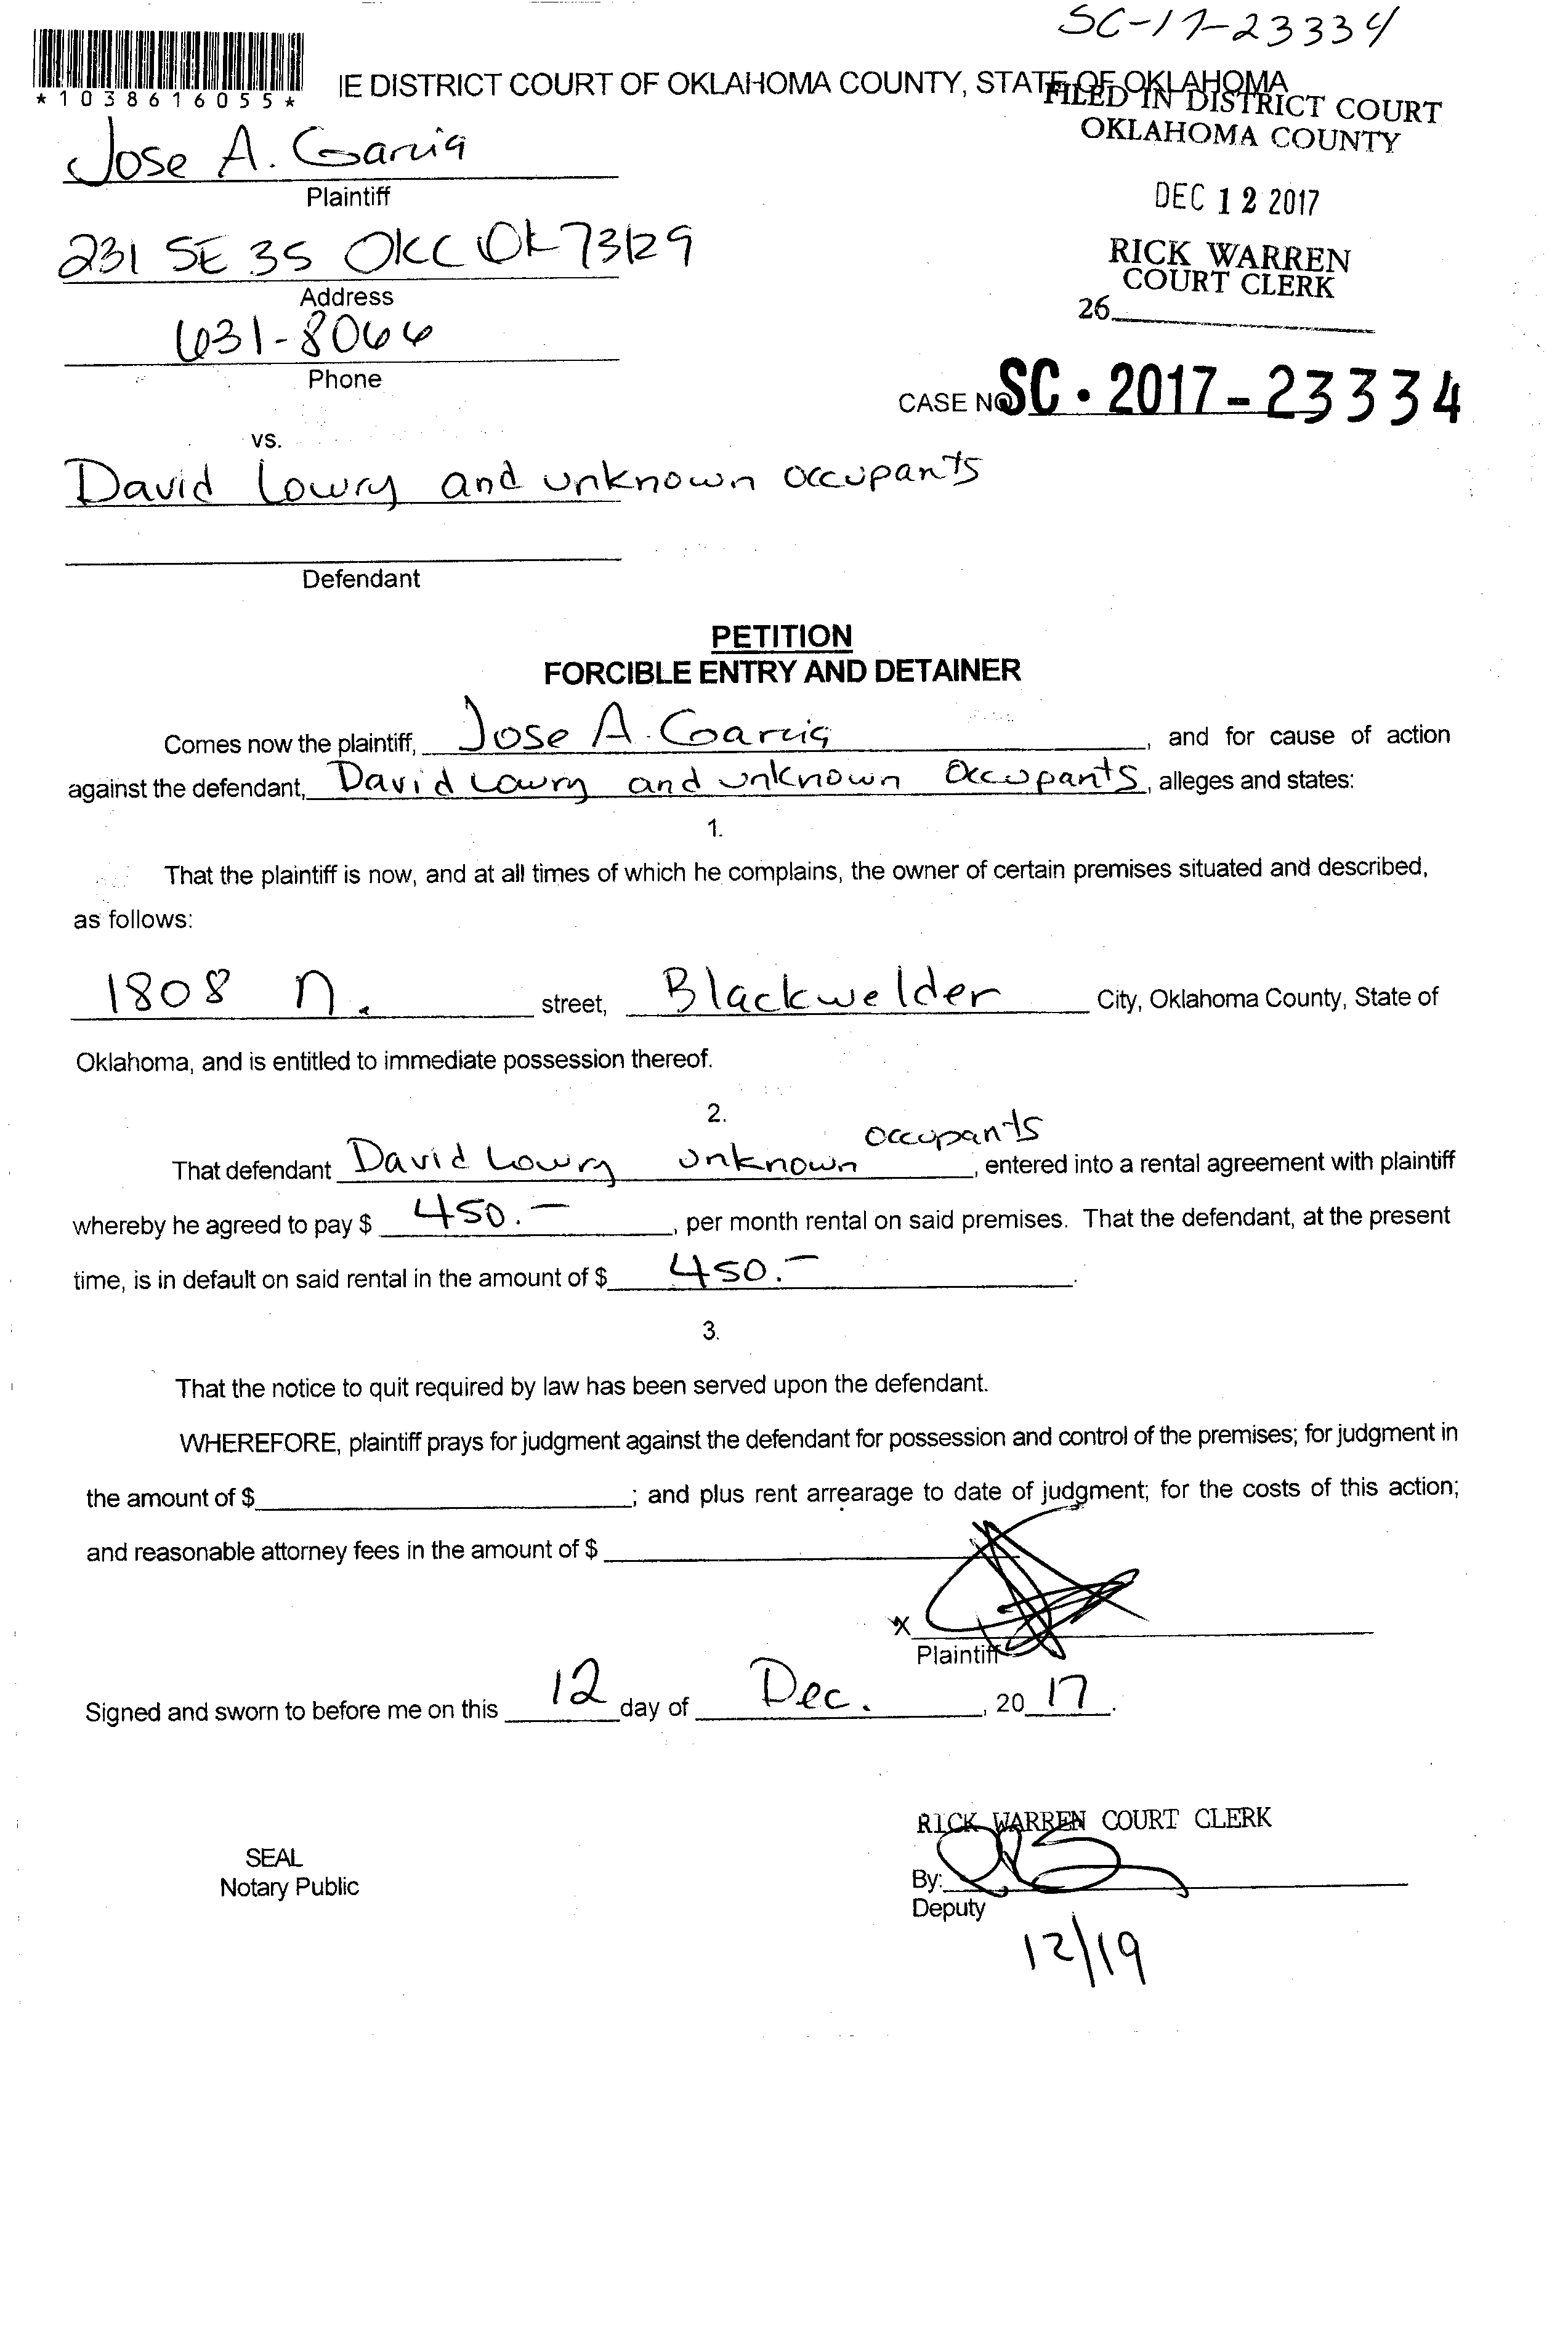 SC-17-23334
*1038616055*
IE DISTRICT COURT OF OKLAHOMA COUNTY, STATE OF OKLAHOMA
FILED IN DISTRICT COURT
OKLAHOMA COUNTY
Jose A. Garcia
Plaintiff
DEC 12 2017
231 SE 35 OKC OK 73129
RICK WARREN
COURT CLERK
Address
26
631-8066
Phone
CASE NO. SC · 2017-23334
vs.
David Lowry and unknown occupants
Defendant
PETITION
FORCIBLE ENTRY AND DETAINER
Comes now the plaintiff, Jose A. Garcia, and for cause of action
against the defendant, David Lowry and unknown Occupants, alleges and states:
1.
That the plaintiff is now, and at all times of which he complains, the owner of certain premises situated and described,
as follows:
1808 N. street, Blackwelder City, Oklahoma County, State of
Oklahoma, and is entitled to immediate possession thereof.
2.
occupants
That defendant David Lowry unknown, entered into a rental agreement with plaintiff
whereby he agreed to pay $ 450.—, per month rental on said premises. That the defendant, at the present
time, is in default on said rental in the amount of $ 450.—.
3.
That the notice to quit required by law has been served upon the defendant.
WHEREFORE, plaintiff prays for judgment against the defendant for possession and control of the premises; for judgment in
the amount of $; and plus rent arrearage to date of judgment; for the costs of this action;
and reasonable attorney fees in the amount of $
X
Plaintiff
Signed and sworn to before me on this 12 day of Dec., 2017.
RICK WARREN COURT CLERK
SEAL
Notary Public
By:
Deputy
12/19